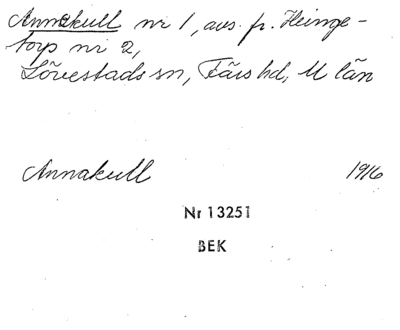 Annakull nr 1, avs. fr. Heinge-
torp nr 2,
Lövestads sn, Färs hd, M län
Annakull 1916
Nr 13251
BEK